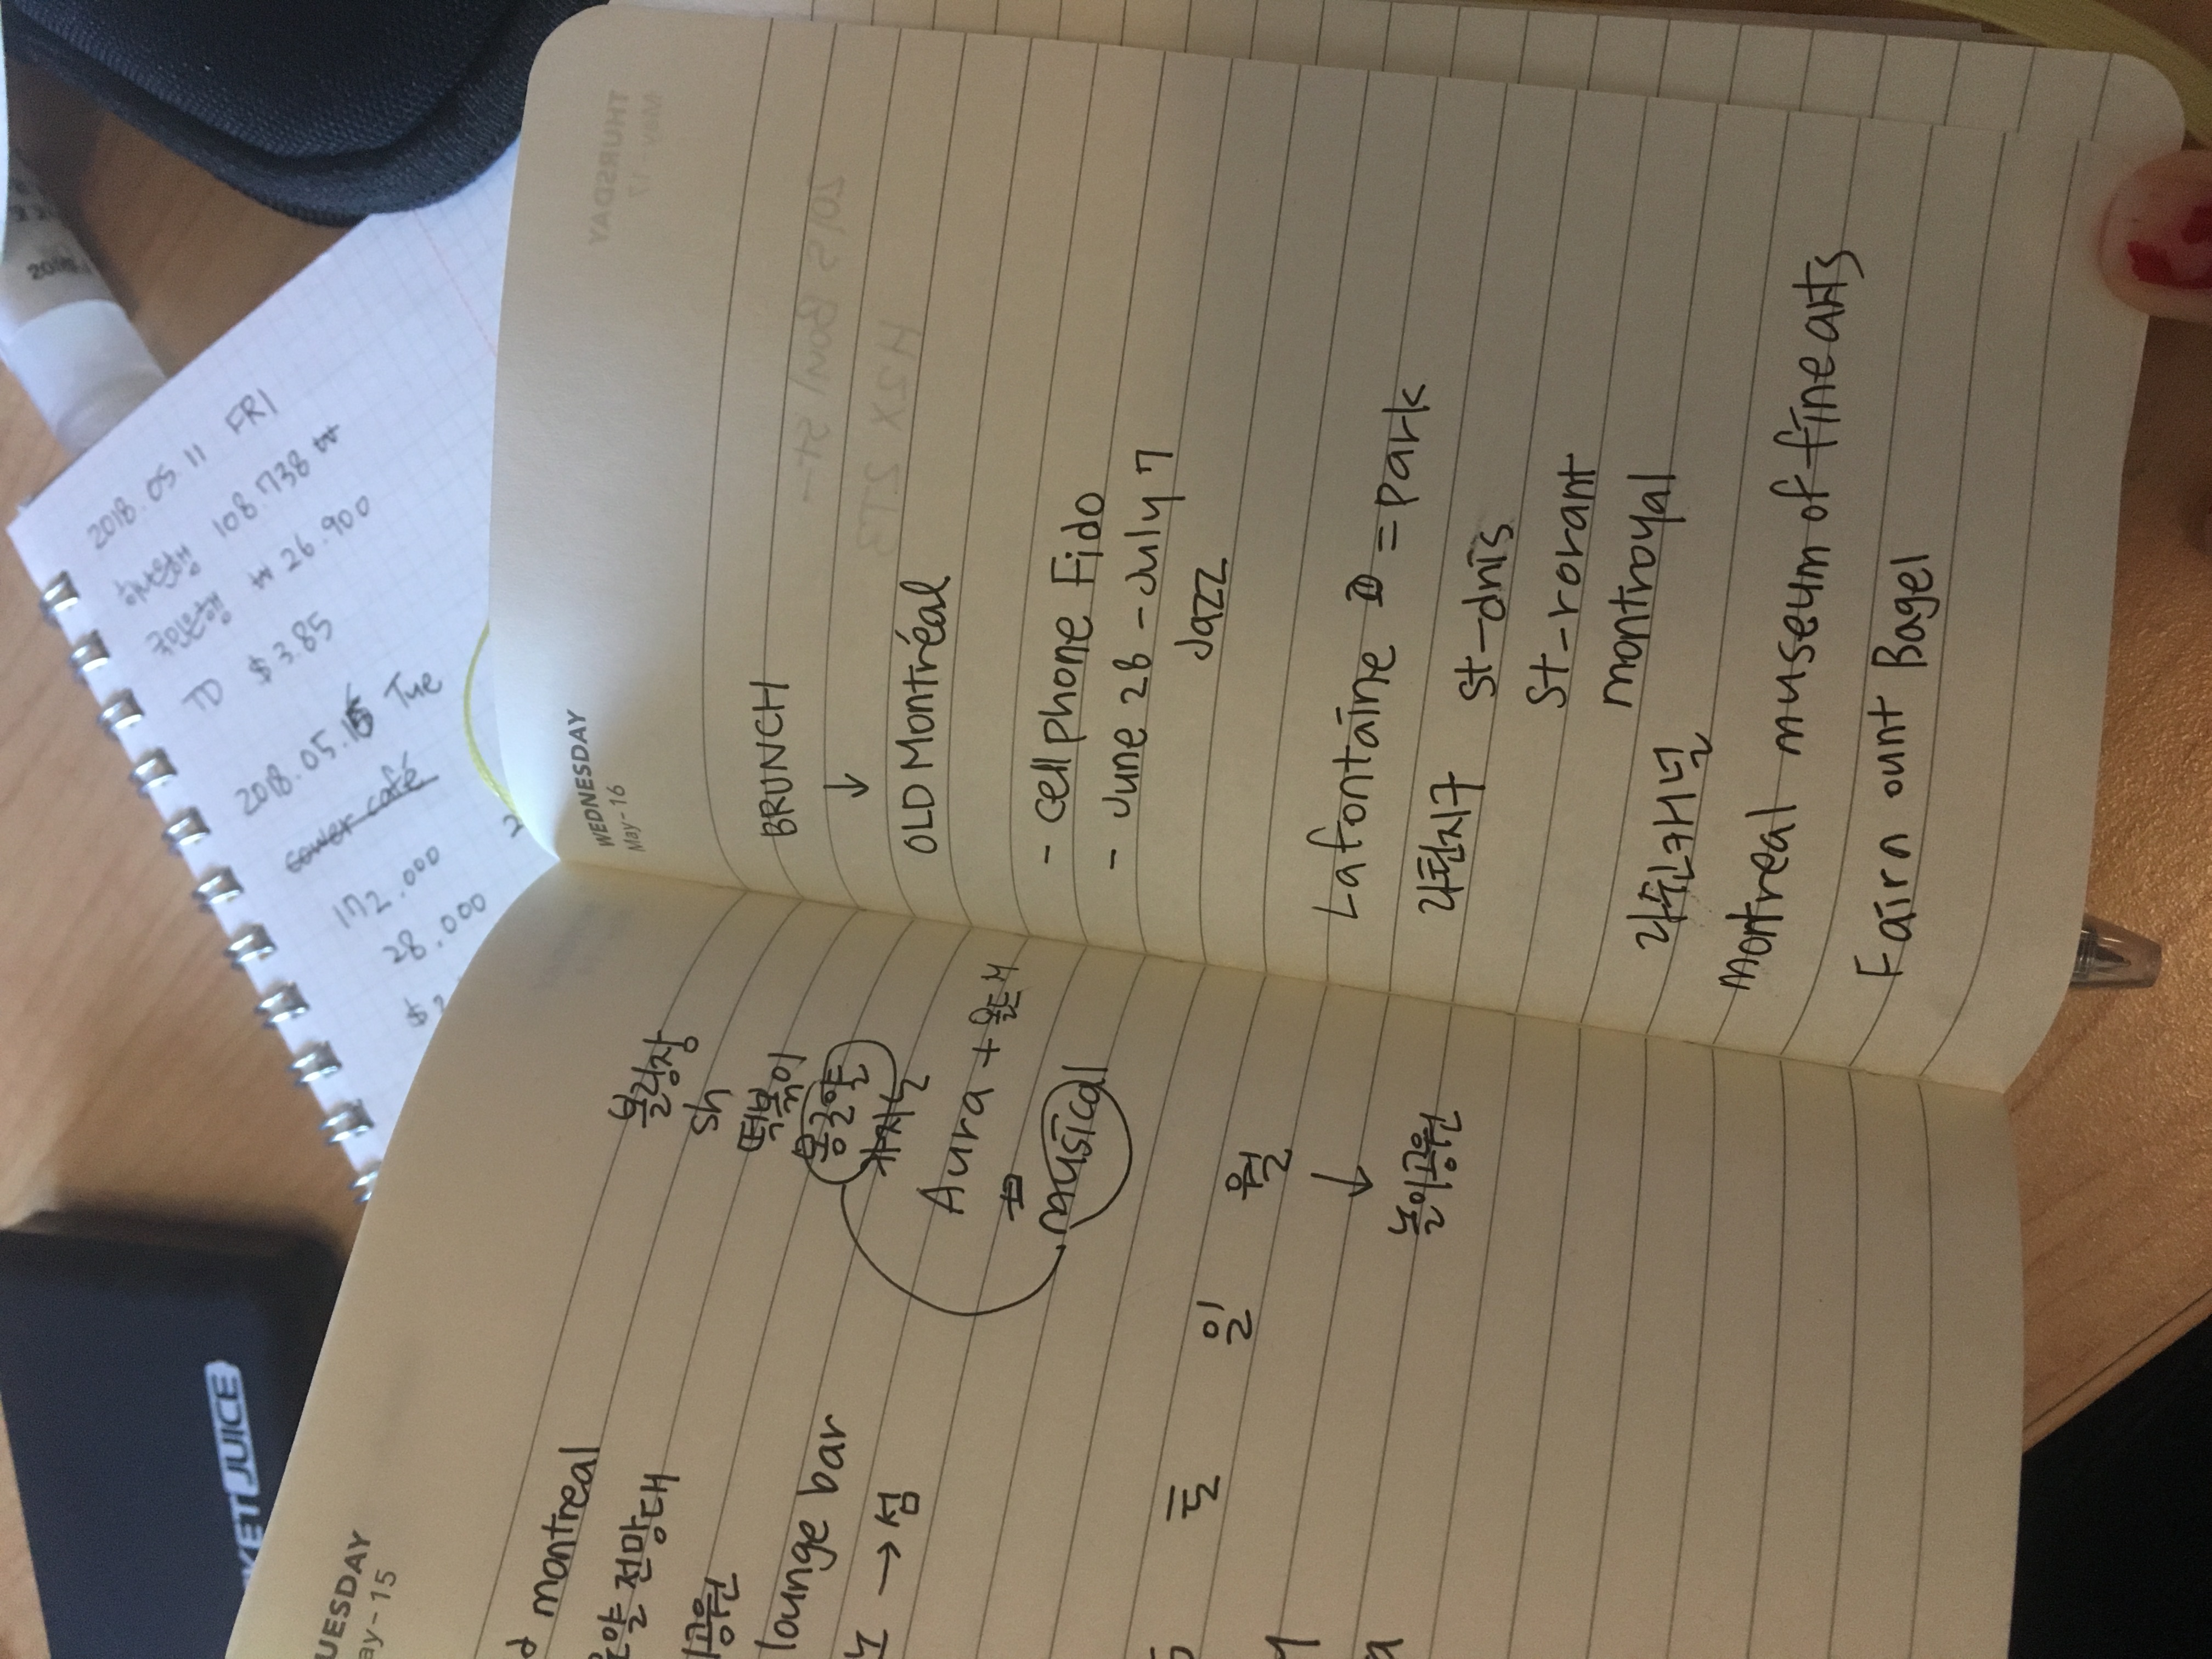 JUICE
2018. 05. 11 FRI
하나은행 108.738 ₩
국민은행 ₩ 26.900
TD $3.85
2018. 05. Tue
172.000
28.000
montreal
전망대
공원
lounge bar
→ 섬
볼링장
sh
떡볶이
몽로얄
카지노
Aura +
musical
토 일 월
↓
놀이공원
WEDNESDAY
May-16
BRUNCH
↓
OLD Montréal
- cell phone Fido
- June 28 - July 7
Jazz
Lafontaine = park
라틴지구 st-dnis
st-rorant
montroyal
라쉰캐널
montreal museum of fine arts
Fairn ount Bagel
THURSDAY
May-17
H2X 2T3